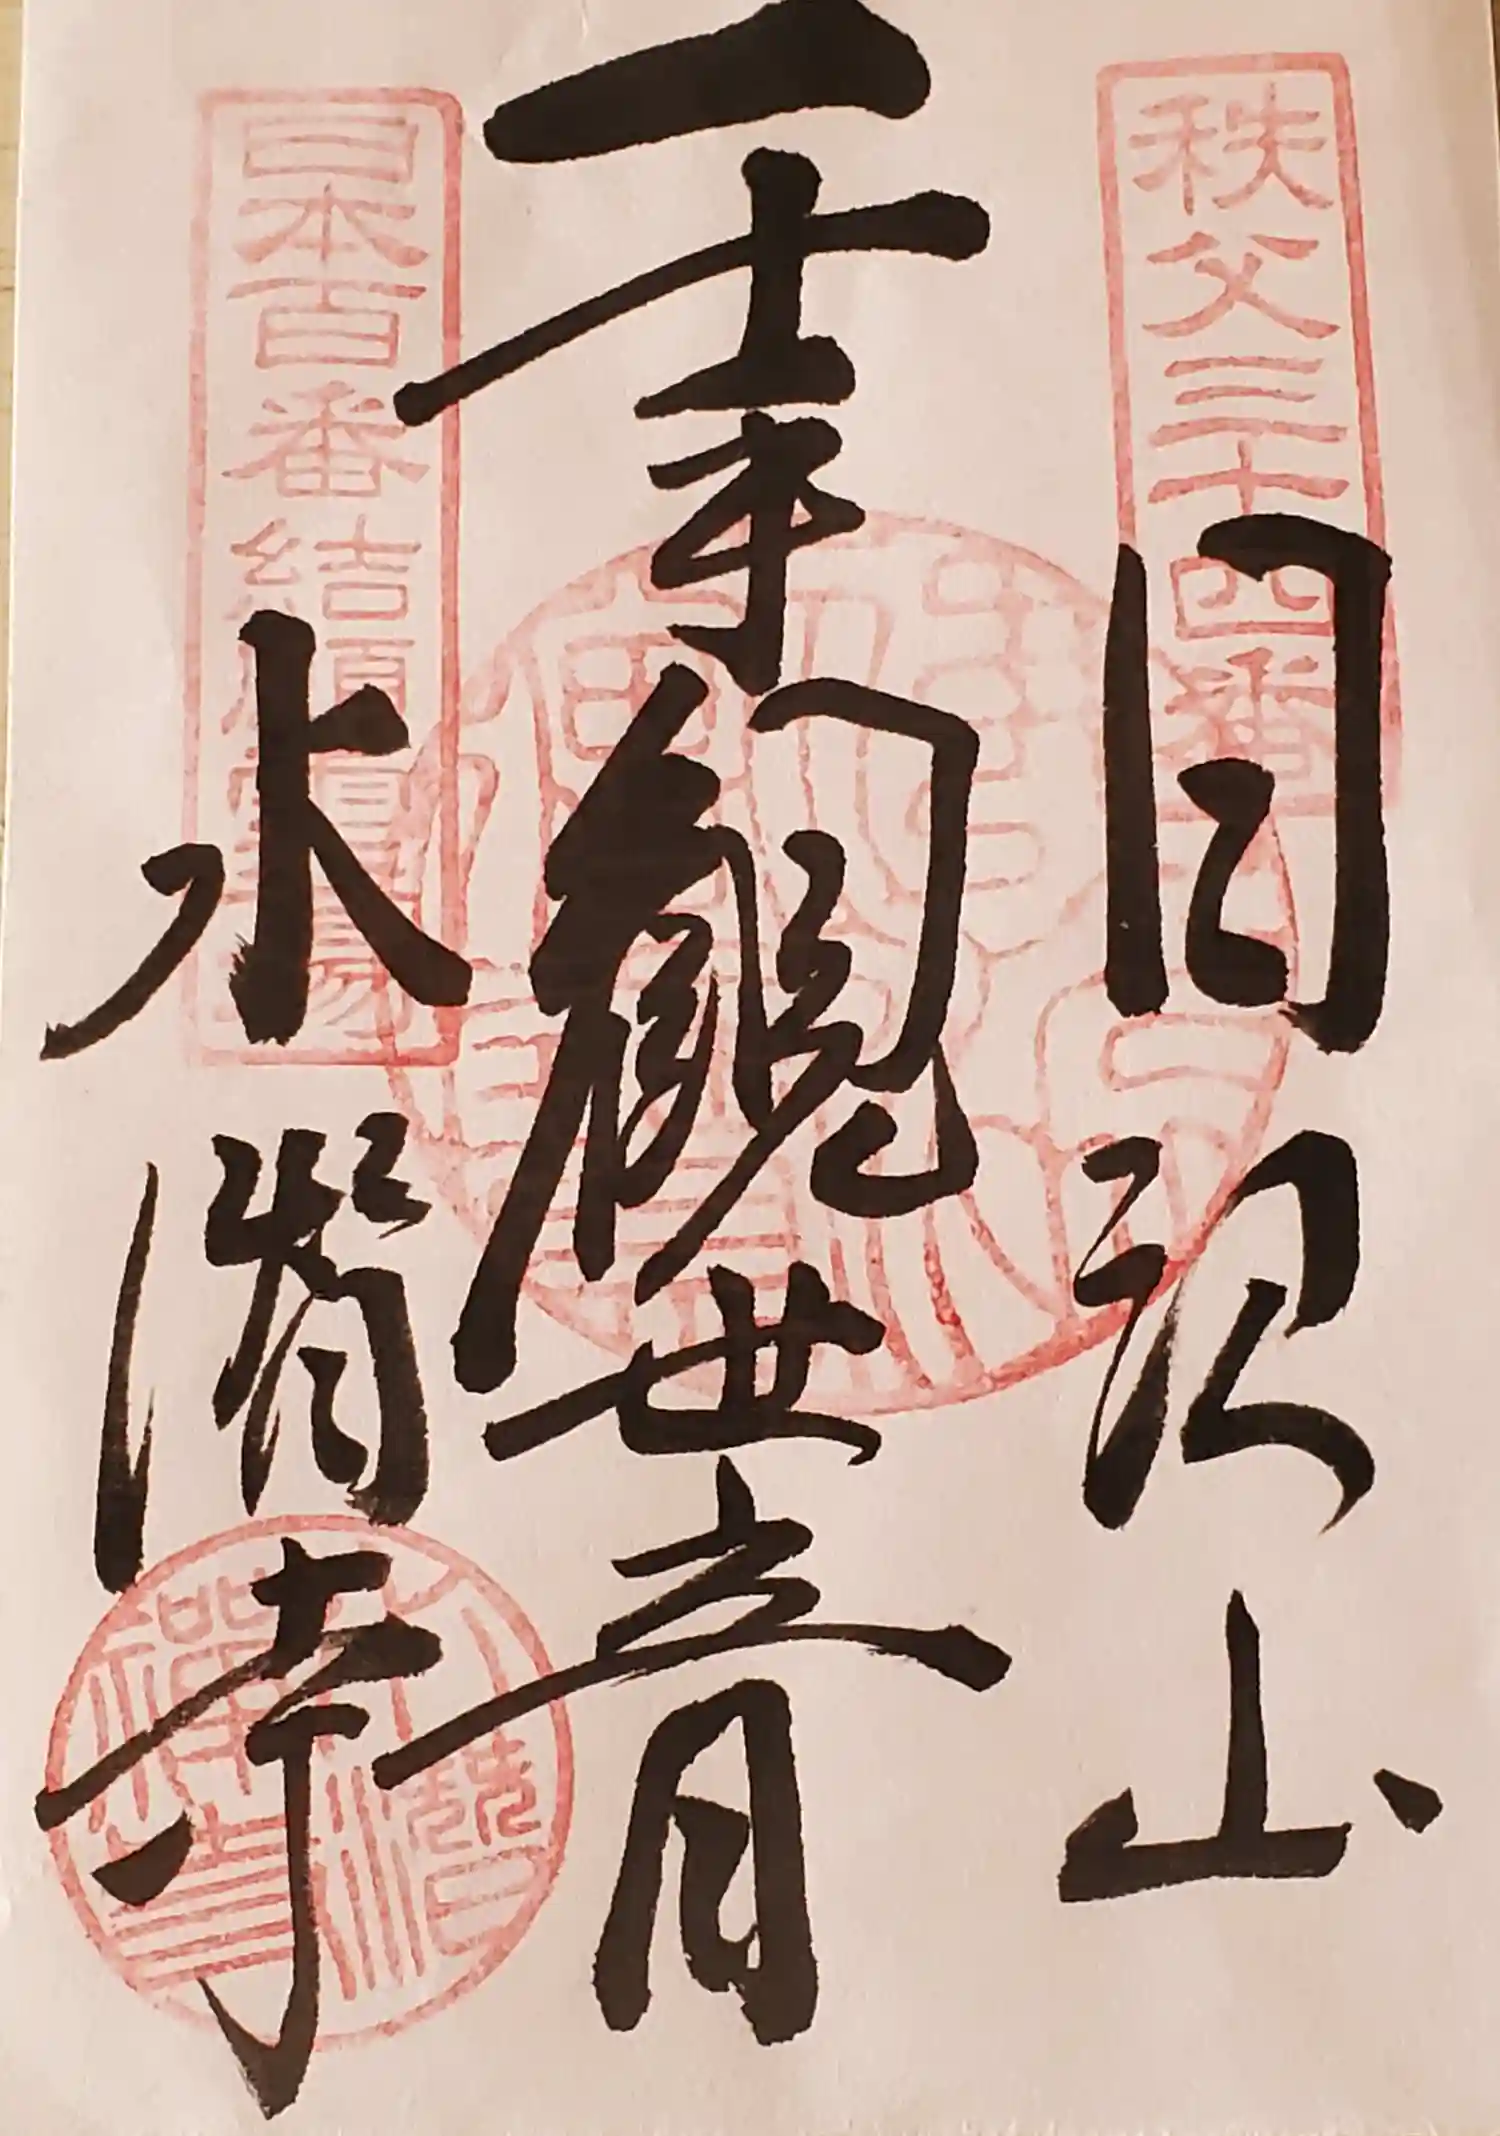 秩父三十四番
日沢山
千手観世音
日本百番結願霊場
水潜寺
水潜禪寺